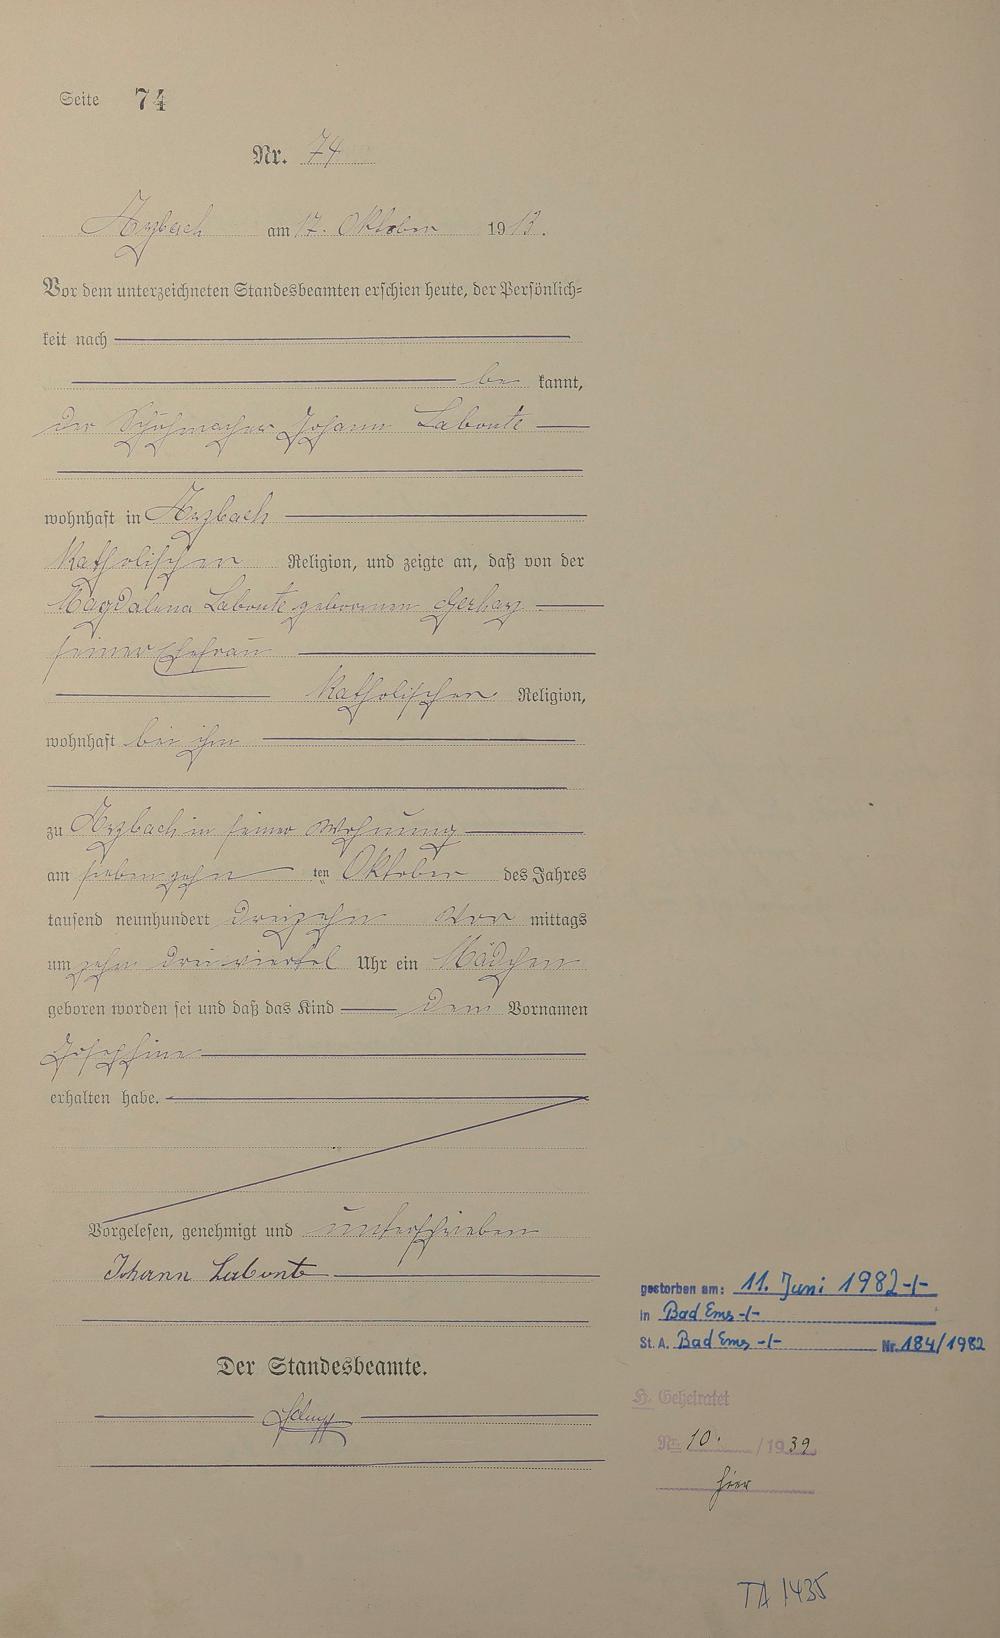 Seite 74
Nr. 74
Arzbach am 17. Oktober 1913.
Vor dem unterzeichneten Standesbeamten erschien heute, der Persönlich-
keit nach
be kannt,
der Schuhmacher Johann Labonte
wohnhaft in Arzbach
katholischer Religion, und zeigte an, daß von der
Magdalena Labonte geborenen Gerharz
seiner Ehefrau
katholischer Religion,
wohnhaft bei ihm
zu Arzbach in seiner Wohnung
am siebenzehn ten Oktober des Jahres
tausend neunhundert dreizehn Vor mittags
um zehn dreiviertel Uhr ein Mädchen
geboren worden sei und daß das Kind den Vornamen
Josephine
erhalten habe.
Vorgelesen, genehmigt und unterschrieben
Johann Labonte
Der Standesbeamte.
gestorben am: 11. Juni 1982 -/-
in Bad Ems -/-
St. A. Bad Ems -/- Nr. 184/1982
H. Geheiratet
Nr. 10. / 1939
hier
TA 1435